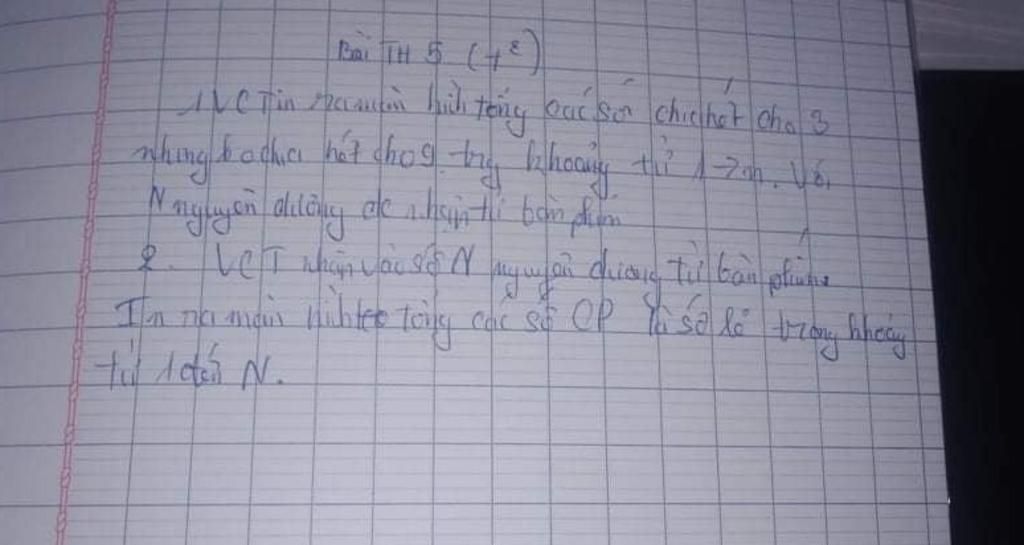 Bài TH 5 (t²)
1 VCT in ra màn hình tổng các số chia hết cho 3
nhưng ko chia hết cho 9 trg khoảng từ 1 → n. Với
N nguyên dương đc nhập từ bàn phím
2. VCT nhập vào số N nguyên dương từ bàn phím
In ra màn hình tổng các số CP là số lẻ trong khoảng
từ 1 đến N.